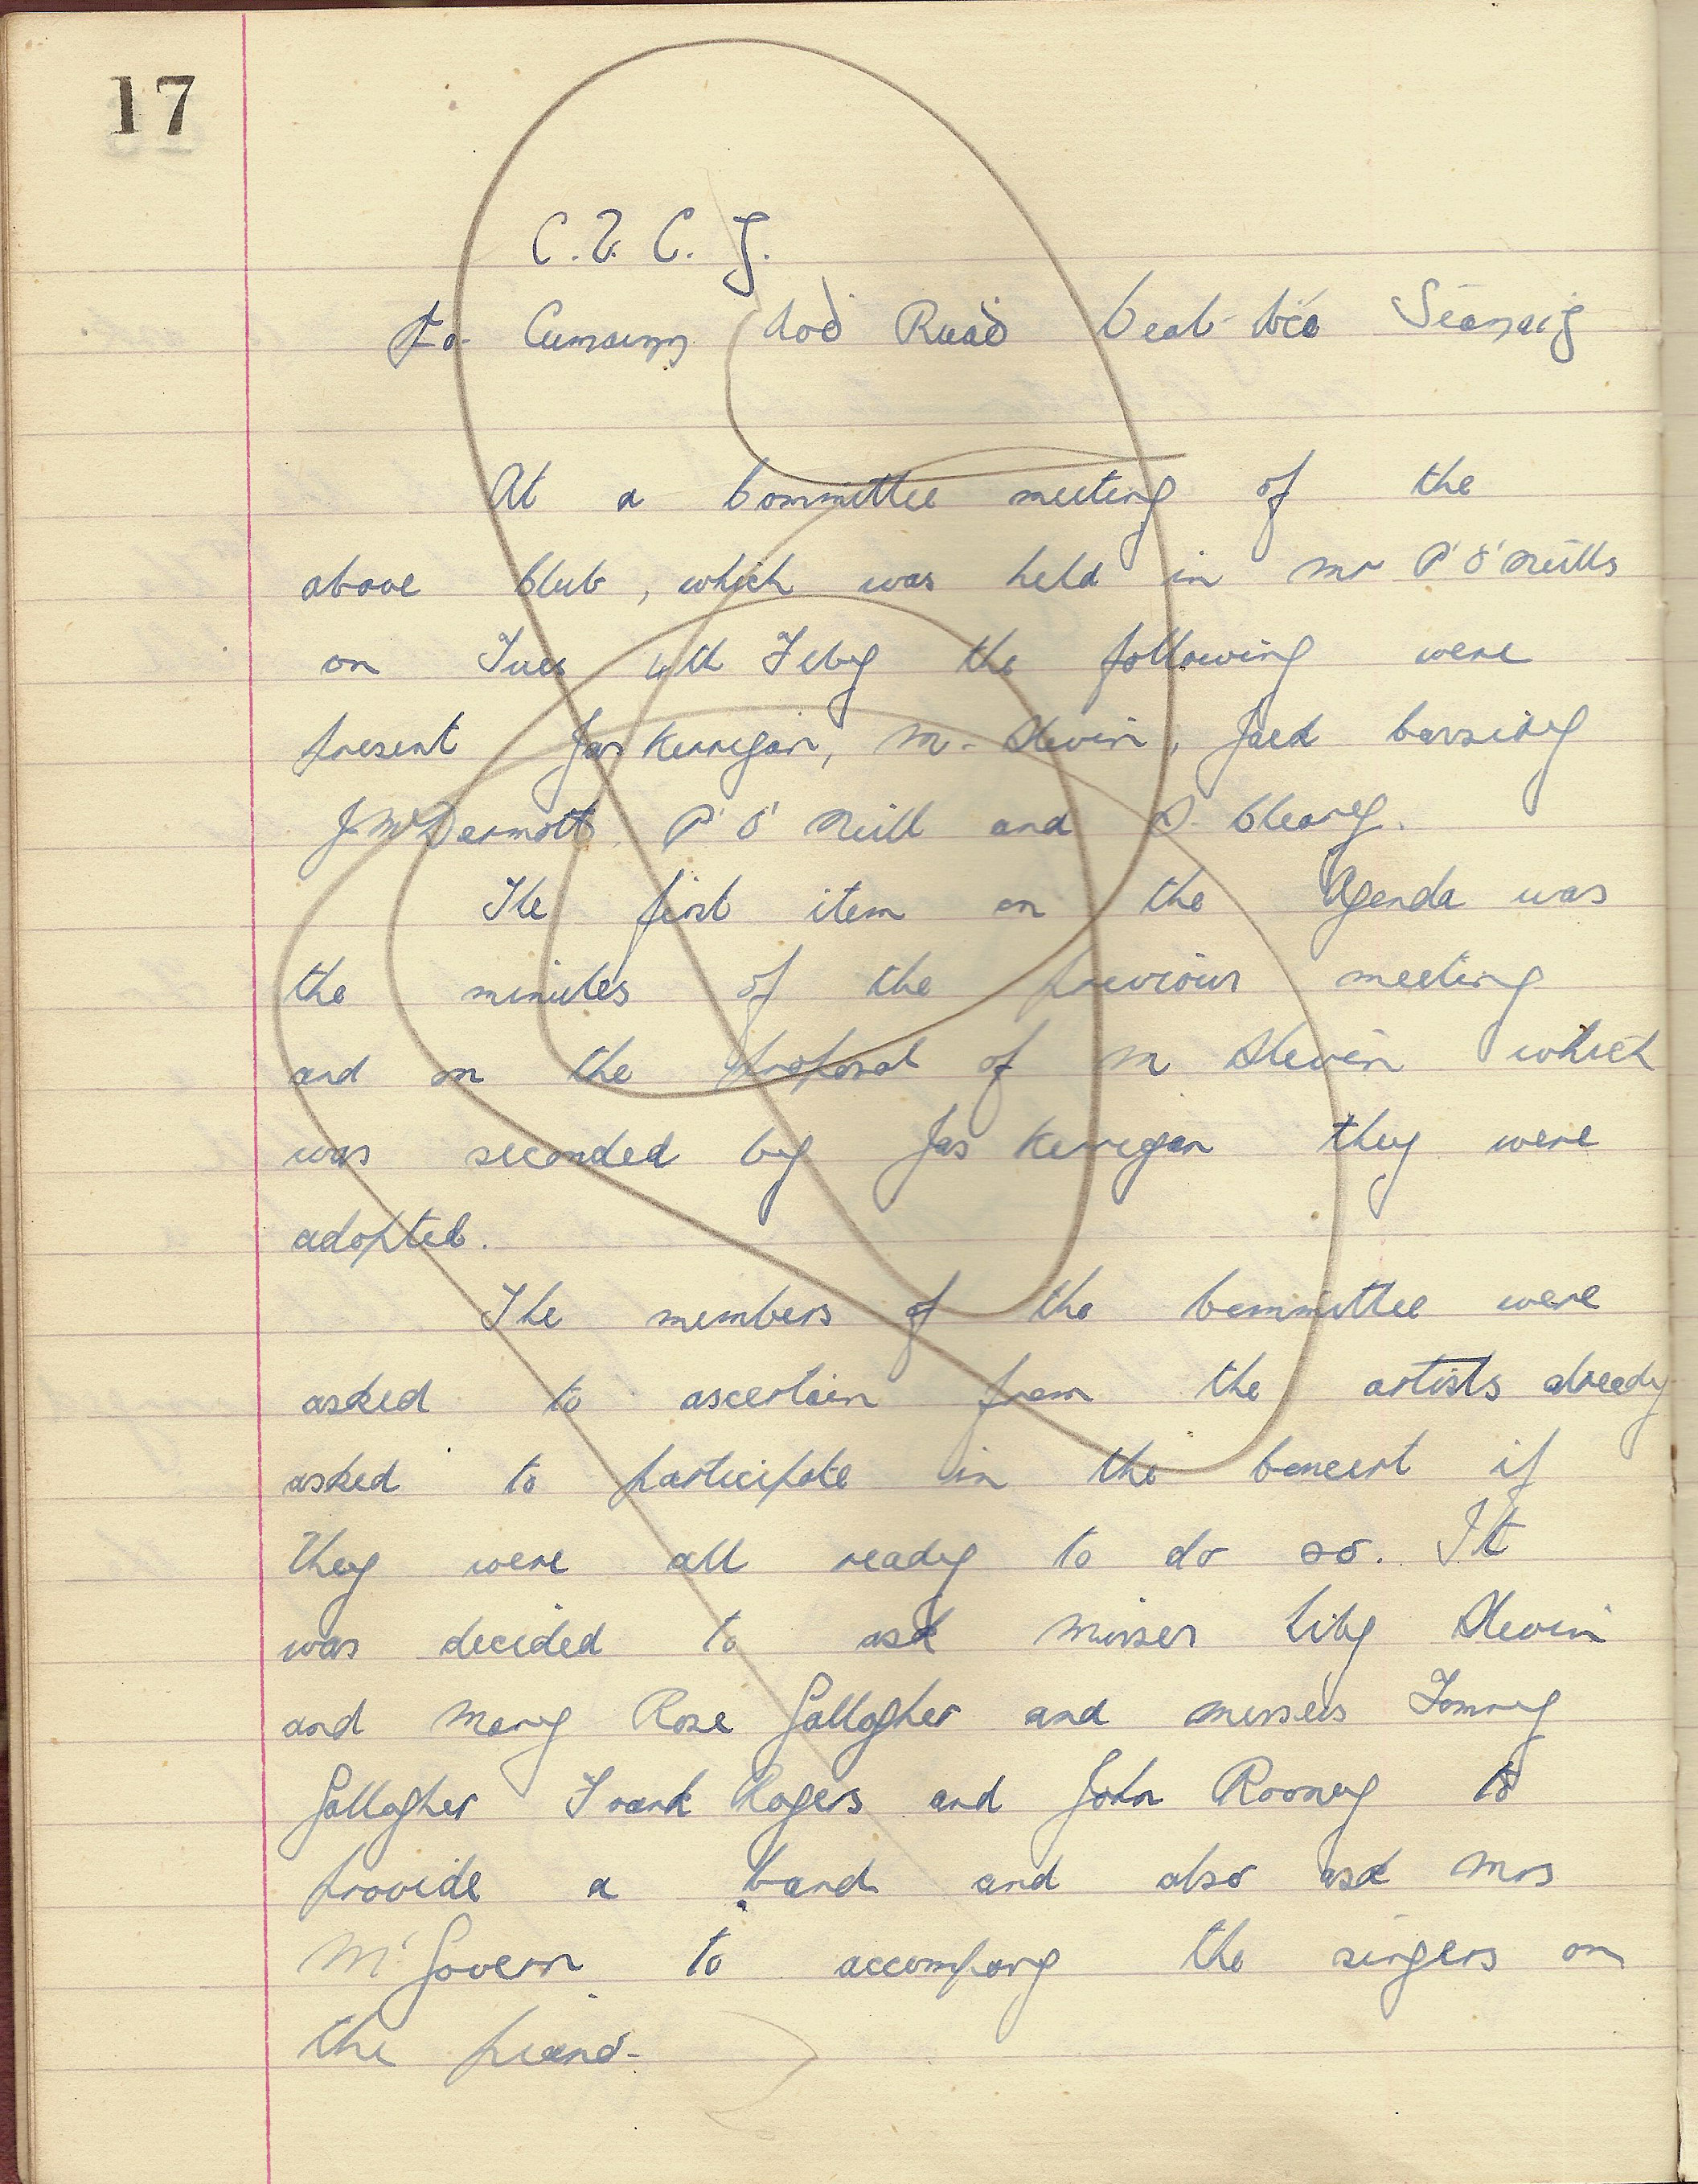 17
C. L. C. G.
Cumainn Aoḋ Ruaḋ Beal
At a Committee meeting of the
above Club, which was held in Mr P O'Neills
on Tues 4th Feby the following were
present Jas Kerrigan, M. Slevin, Jack
J. McDermott, P O'Neill and S. Cleary.
The first item on the Agenda was
the minutes of the previous meeting
and on the proposal of M Slevin which
was seconded by Jas Kerrigan they were
adopted.
The members of the Committee were
asked to ascertain from the artists already
asked to participate in the Concert if
they were all ready to do so. It
was decided to ask Misses Lily Slevin
and Mary Rose Gallagher and Messers Tommy
Gallagher Frank Rogers and John Rooney to
provide a band and also ask Mrs
McGovern to accompany the singers on
the piano.